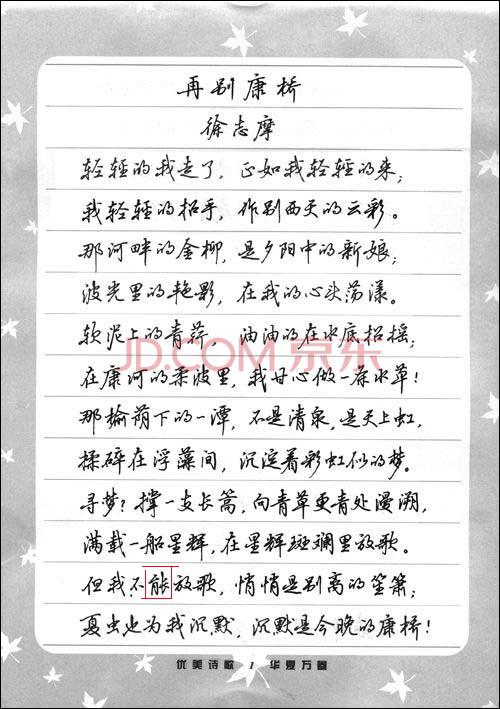 再别康桥
徐志摩
轻轻的我走了，正如我轻轻的来；
我轻轻的招手，作别西天的云彩。
那河畔的金柳，是夕阳中的新娘；
波光里的艳影，在我的心头荡漾。
软泥上的青荇，油油的在水底招摇；
JD.COM 京东
在康河的柔波里，我甘心做一条水草！
那榆荫下的一潭，不是清泉，是天上虹，
揉碎在浮藻间，沉淀着彩虹似的梦。
寻梦？撑一支长篙，向青草更青处漫溯，
满载一船星辉，在星辉斑斓里放歌。
但我不能放歌，悄悄是别离的笙箫；
夏虫也为我沉默，沉默是今晚的康桥！
优美诗歌 / 华夏万卷